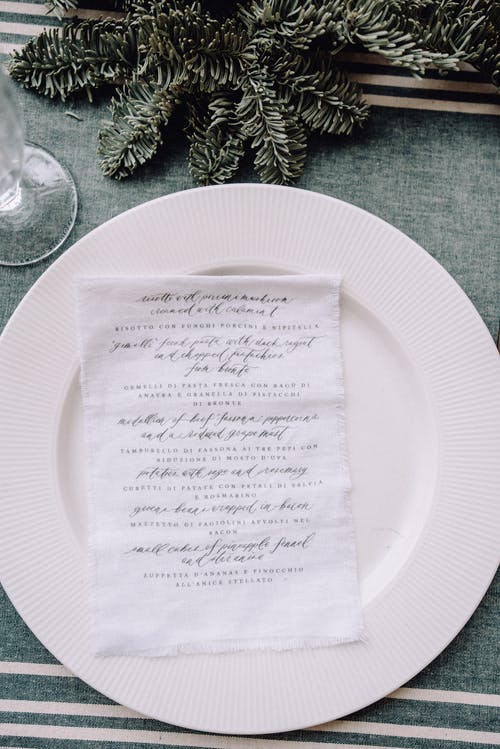 risotto with porcini mushroom
creamed with calamint
RISOTTO CON FUNGHI PORCINI E NIPITELLA
"gemelli" fresh pasta with duck ragout
and chopped pistachios
from bronte
GEMELLI DI PASTA FRESCA CON RAGÙ DI
ANATRA E GRANELLA DI PISTACCHI
DI BRONTE
medallion of beef fassona peppercorns
and a reduced grape must
TAMBURELLO DI FASSONA AI TRE PEPI CON
RIDUZIONE DI MOSTO D'UVA
potatoes with sage and rosemary
CUBETTI DI PATATE CON PETALI DI SALVIA
E ROSMARINO
green beans wrapped in bacon
MAZZETTO DI FAGIOLINI AVVOLTI NEL
BACON
small cubes of pineapple fennel
and star anise
ZUPPETTA D'ANANAS E FINOCCHIO
ALL'ANICE STELLATO